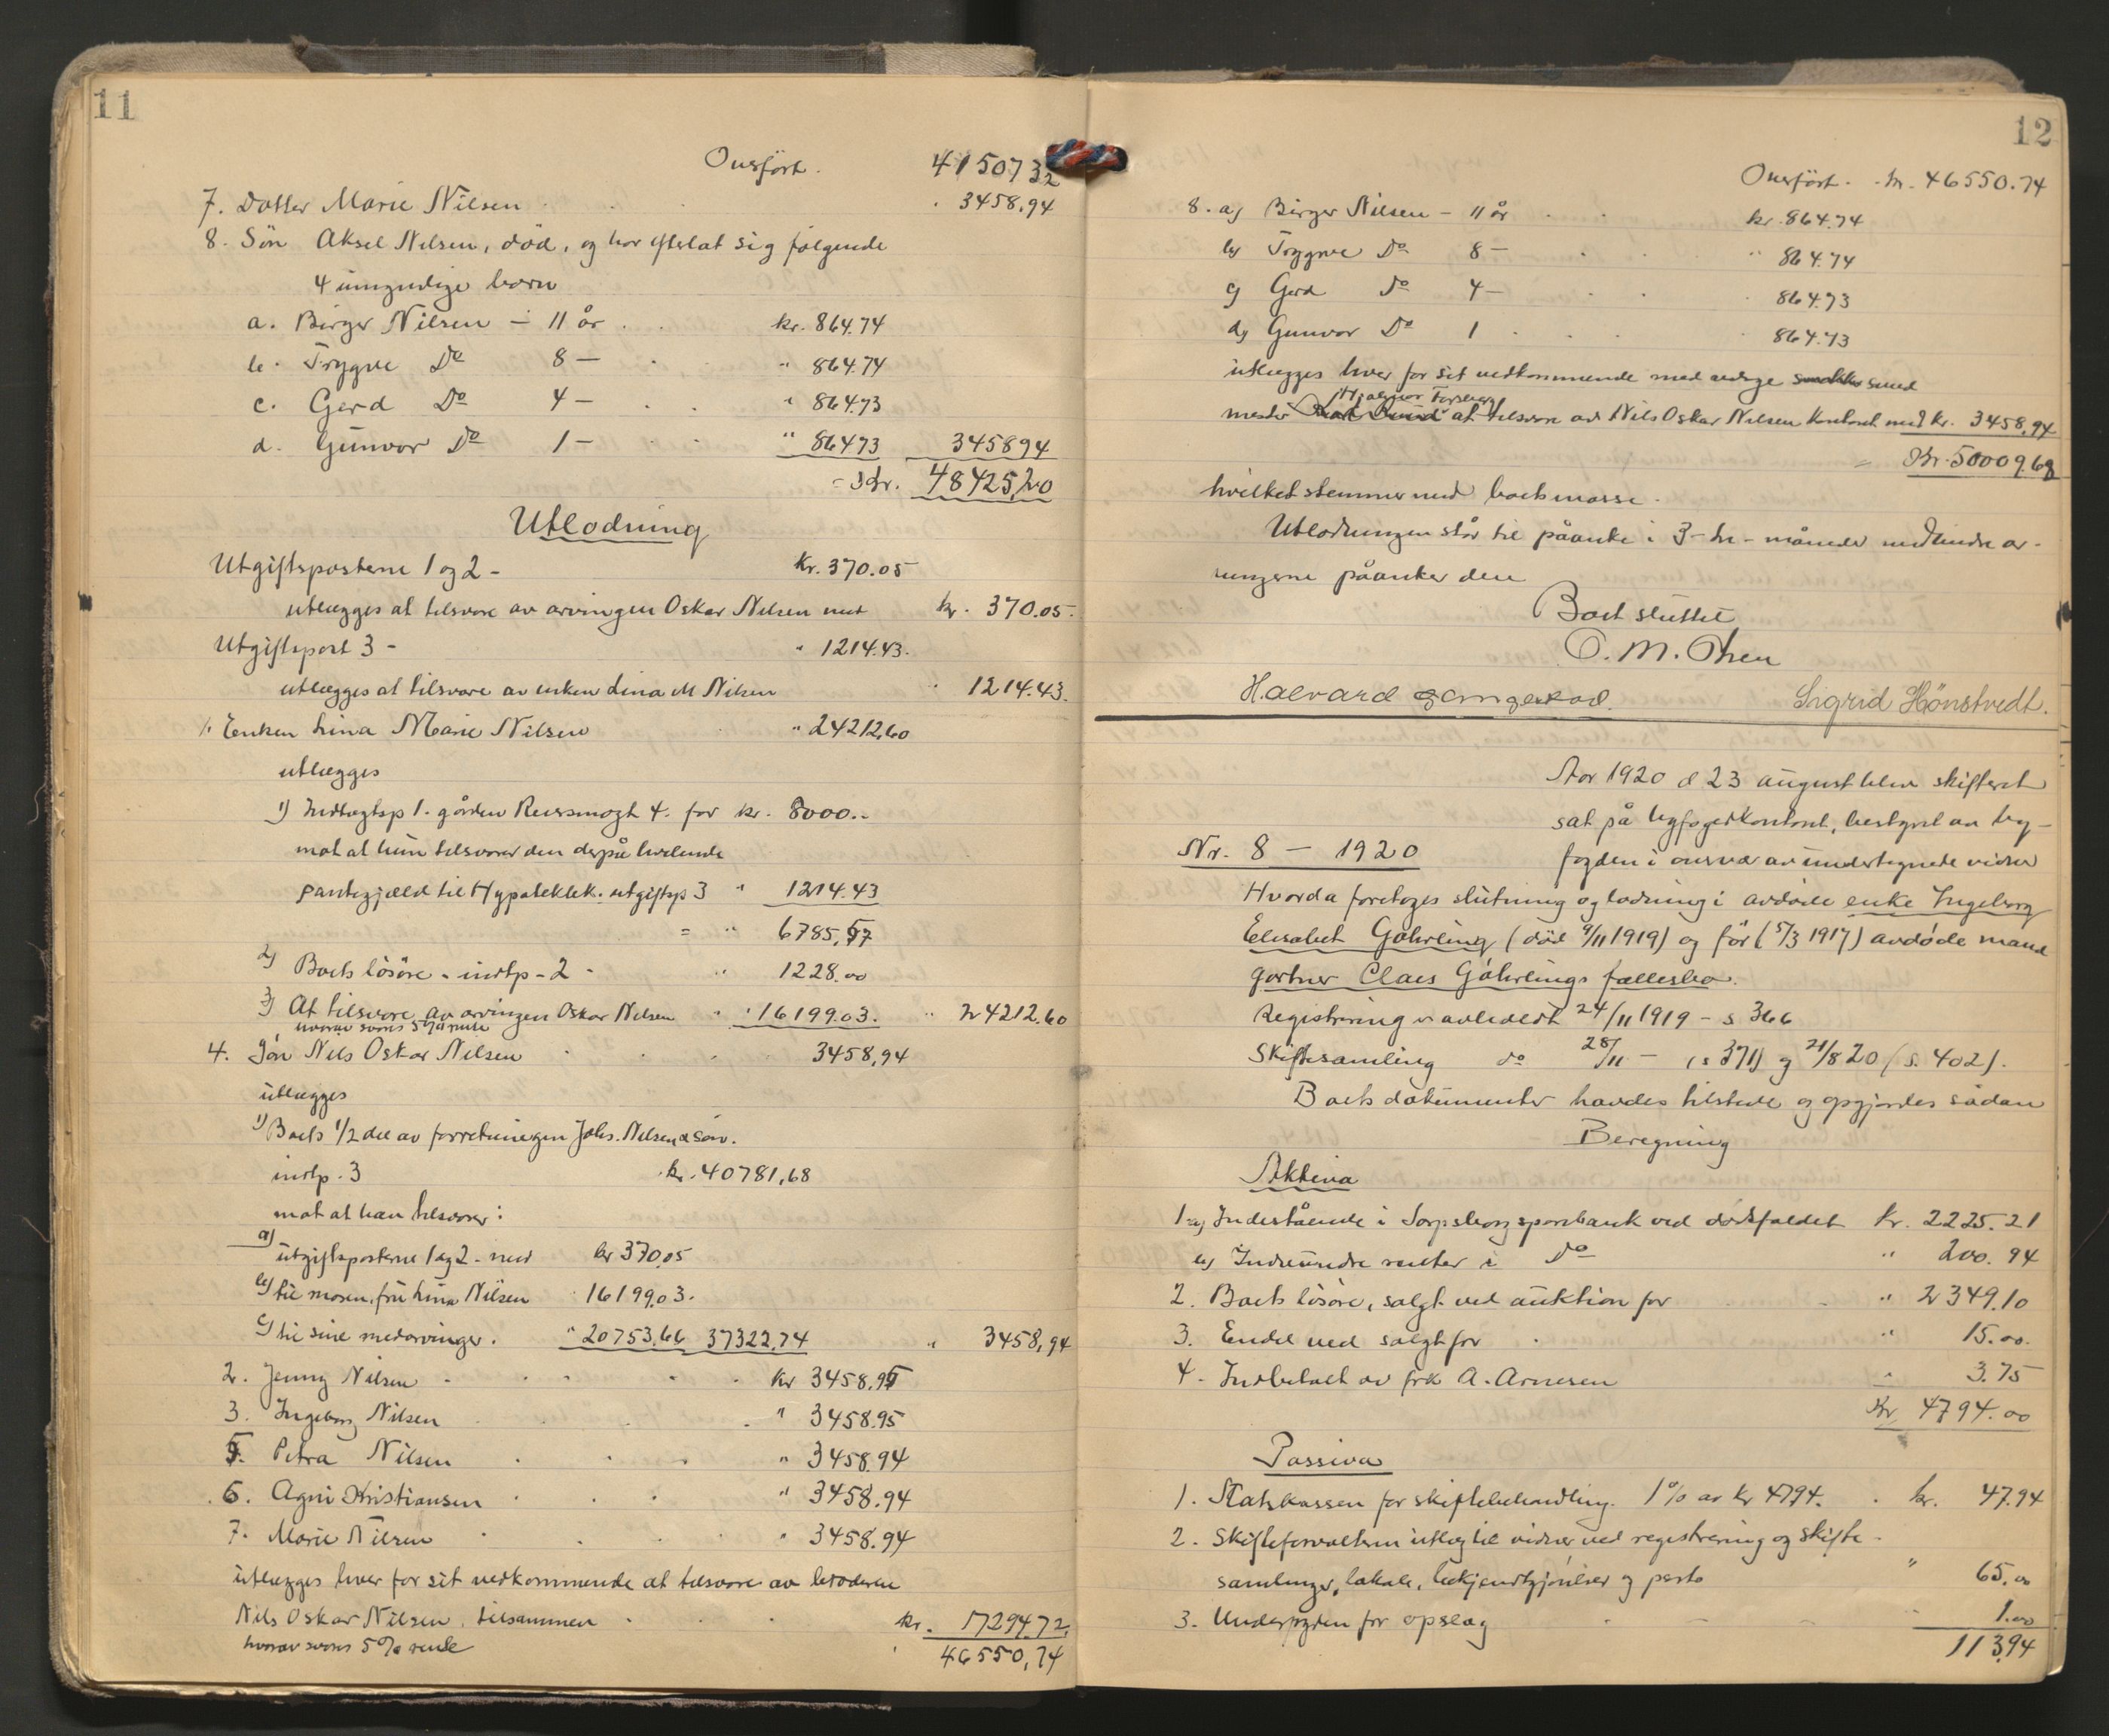 11
Overført. 41507 32
7. Datter Marie Nilsen 3458,94
8. Søn Aksel Nilsen, død, og har efterlat sig følgende
4 umyndige barn
a. Birger Nilsen – 11 år kr. 864.74
b. Trygve Do 8 – " 864.74
c. Gerd Do 4 – " 864.73
d. Gunvor Do 1 – " 86473 345894
= Kr. 48425,20
Utlodning
Utgiftsposterne 1 og 2 – Kr. 370.05
utlægges at tilsvare av arvingen Oskar Nilsen med kr. 370.05.
Utgiftspost 3 – " 1214.43.
utlægges at tilsvare av enken Lina M Nilsen " 1214.43.
1. Enken Lina Marie Nilsen " 24212,60
utlægges
1) Indtægtsp 1. gården 4. for kr. 8000.-
mot at hun tilsvarer den derpå heftende
pantegjæld til Hypotekbk. utgiftsp 3 " 1214.43
= " 6785,57
2) Boets løsøre - indtp - 2 - " 1228.00
3) At tilsvare av arvingen Oskar Nilsen " 16199.03. " 24212.60
hvorav svares 5% rente
4. Søn Nils Oskar Nilsen 3458,94
utlægges
1) Boets 1/2 del av forretningen Johs. Nilsen & søn.
indtp. 3 kr. 40781,68
mot at han tilsvarer:
a) utgiftsposterne 1 og 2 - med kr 370.05
b) til moren, fru Lina Nilsen 16199.03.
c) til sine medarvinger. " 20753.66 37322,74 " 3458,94
2. Jenny Nilsen kr 3458.95
3. Ingeborg Nilsen " 3458.95
5. Petra Nilsen " 3458.94
6. Agni Kristiansen " 3458.94
7. Marie Nilsen " 3458.94
utlægges hver for sit vedkommende at tilsvare av broderen
Nils Oskar Nilsen, tilsammen kr. 17294.72.
hvorav svares 5% rente 46550,74
12
Overført. kr. 46550.74
8. a) Birger Nilsen – 11 år kr. 864.74
b) Trygve Do 8 – " 864.74
c) Gerd Do 4 – 864.73
d) Gunvor Do 1 864.73
utlægges hver for sit vedkommende med værge smed
Hjalmar
mester at tilsvare av Nils Oskar Nilsen kontant med kr. 3458,94
= Kr. 50009,68
hvilket stemmer med boets masse.
Utlodningen står til påanke i 3 - tre - måneder medmindre ar-
vingerne påanker den
Boet sluttet
O. M.
Halvard Sigrid Hönstvedt.
Aar 1920 d 23 august blev skifteret
sat på byfogedkontoret, bestyret av by-
Nr. 8 – 1920
fogden i overvær av undertegnede vidner
Hvorda foretoges slutning og lodning i avdøde enke Ingeborg
Elisabet Gøhrling (død 9/11 1919) og før (5/3 1917) avdøde mand
gartner Claes Gøhrlings fællesbo.
Registrering er avholdt 24/11 1919 – s 366
Skiftesamling do 28/11 – (s 371) og 21/8 20 (s. 402).
Boets dokumenter havdes tilstede og opgjordes sådan
Beregning
Aktiva
1 a) Indestående i Sarpsborg sparebank ved dødsfaldet Kr. 2225.21
b) Indvundne renter i Do " 200.94
2. Boets løsøre, solgt ved auktion for " 2349.10
3. Endel ved solgt for " 15.00.
4. Indbetalt av frk A. Arnesen " 3.75
Kr 4794.00
Passiva
1. Statskassen for skiftebehandling. 1% av kr 4794. kr. 47.94
2. Skifteforvalteren utlæg til vidner ved registrering og skifte-
samlinger, lokale, bekjendtgjørelser og porto " 65.00
3. Underfogden for opslag 1.00
113,94